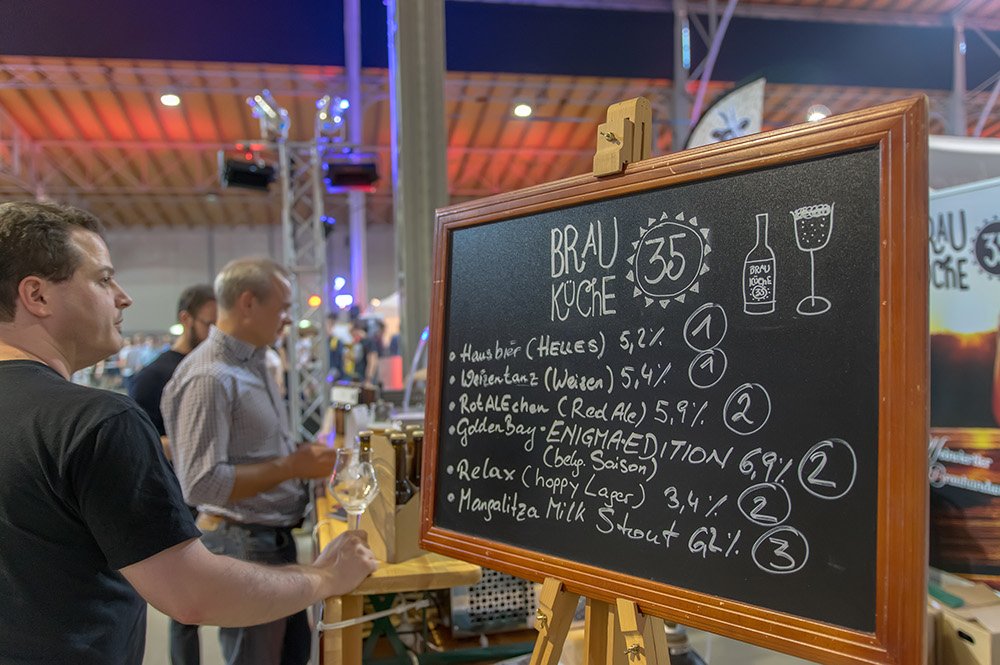 BRAU
KÜCHE
35
BRAU
KÜCHE
35
• Hausbier (HELLES) 5,2% 1
• Weizentanz (Weisen) 5,4% 1
• RotALEchen (Red Ale) 5,9% 2
• Golden Bay - ENIGMA-EDITION
(belg. Saison) 6,9% 2
• Relax (hoppy Lager) 3,4% 2
• Mangalitza Milk Stout 6,2% 3
RAU
KÜCHE
3